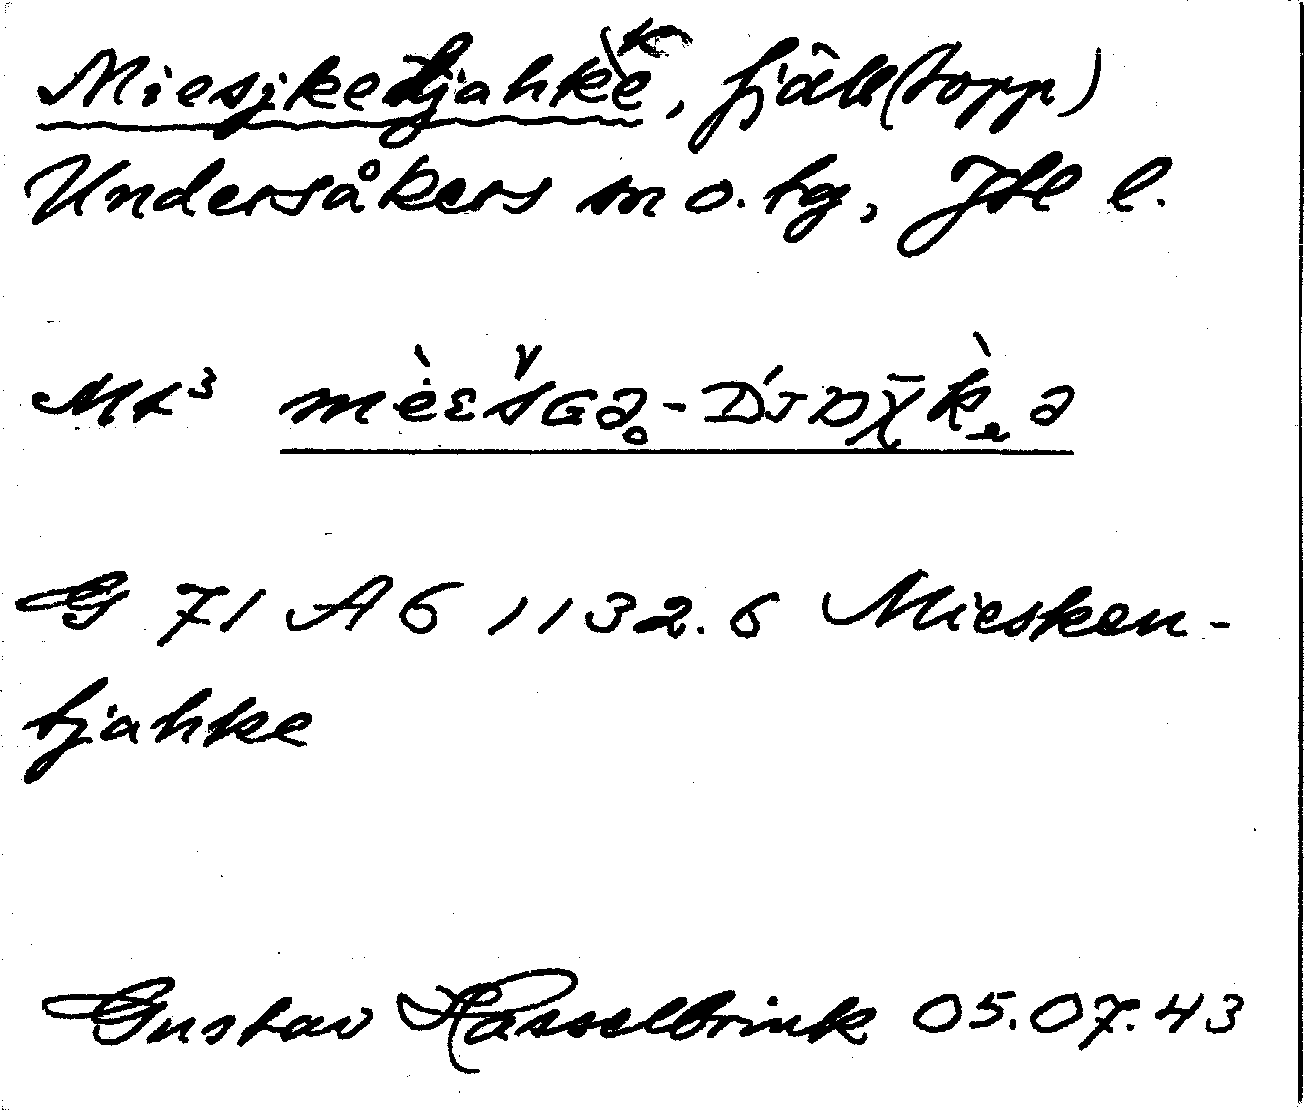 Miesjketjahkke, fjäll(topp)
Undersåkers sn o. tg, Jtl l.
Mt³
G 71 A6 1132.6 Miesken-
tjahke
Gustav Hasselbrink 05.07.43